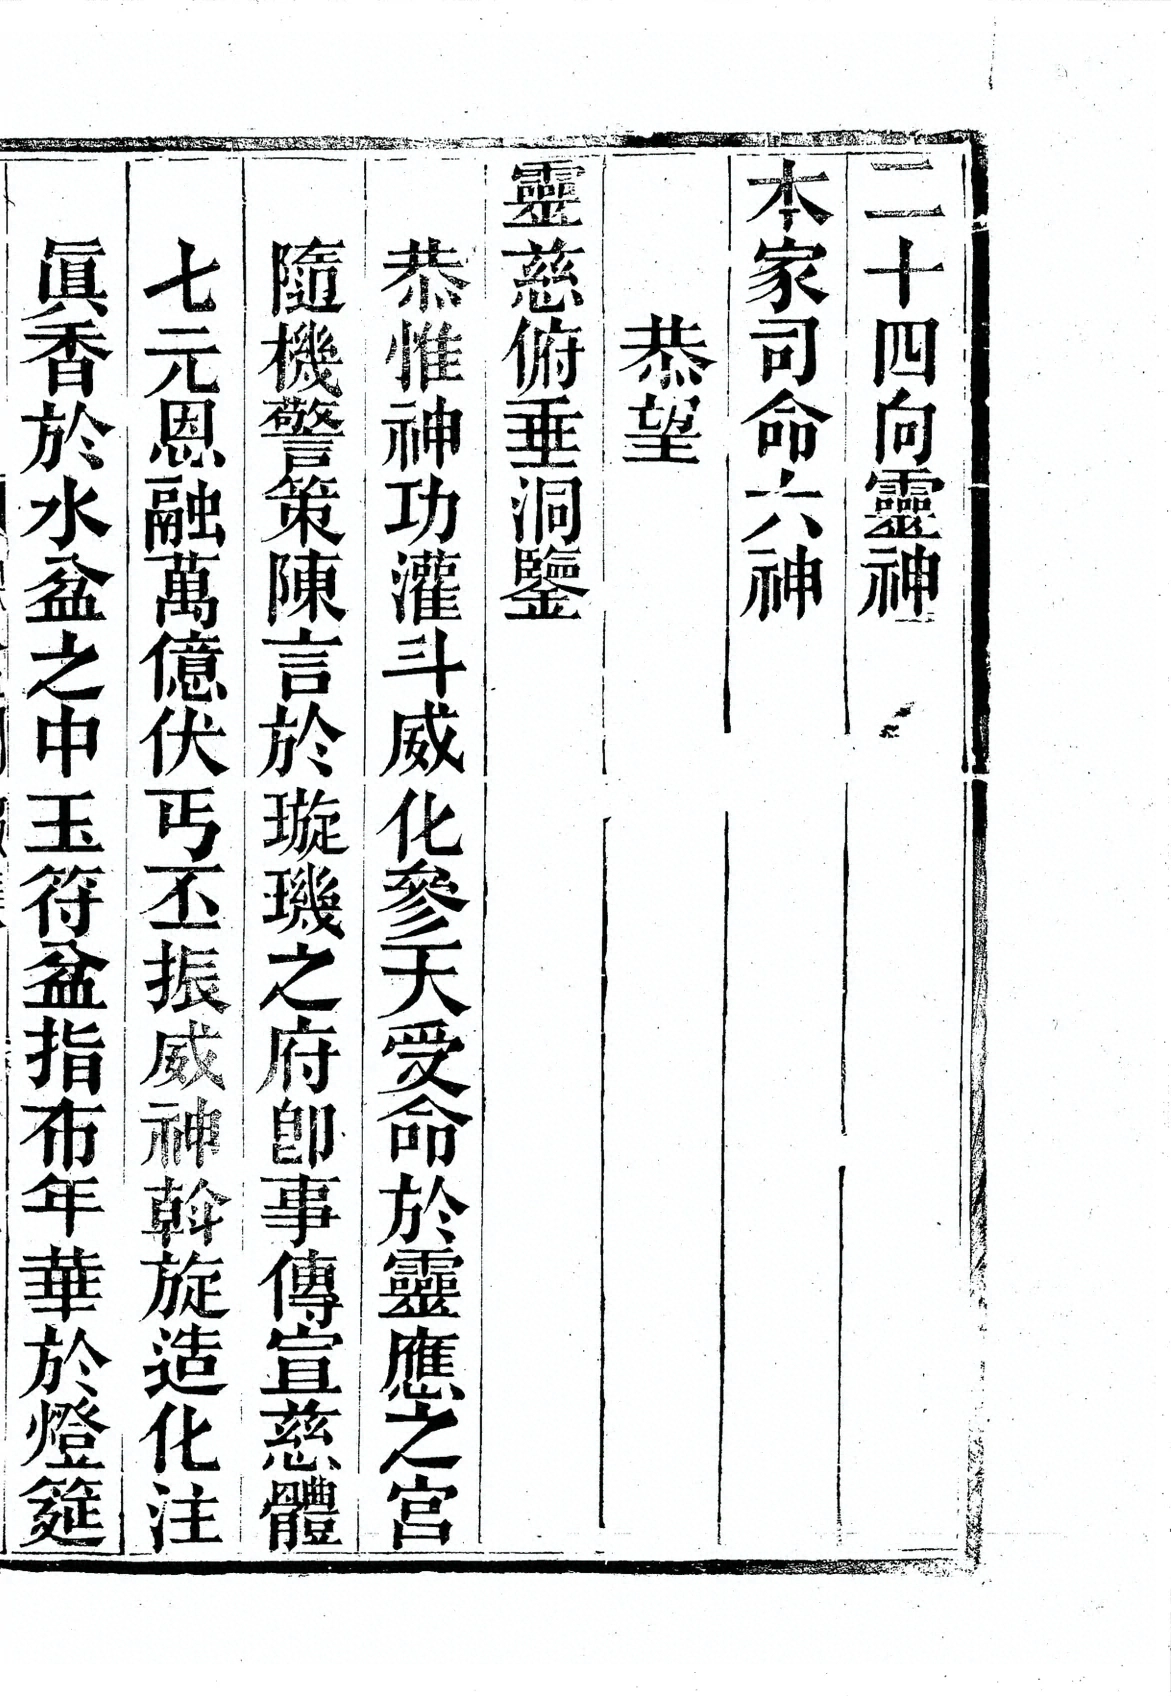 二十四向靈神
本家司命六神
恭望
靈慈俯垂洞鑒
恭惟神功灌斗威化參天受命於靈應之宮
隨機警策陳言於璇璣之府卽事傳宣慈體
七元恩融萬億伏丐丕振威神斡旋造化注
眞香於水盆之中玉符盆指布年華於燈筵